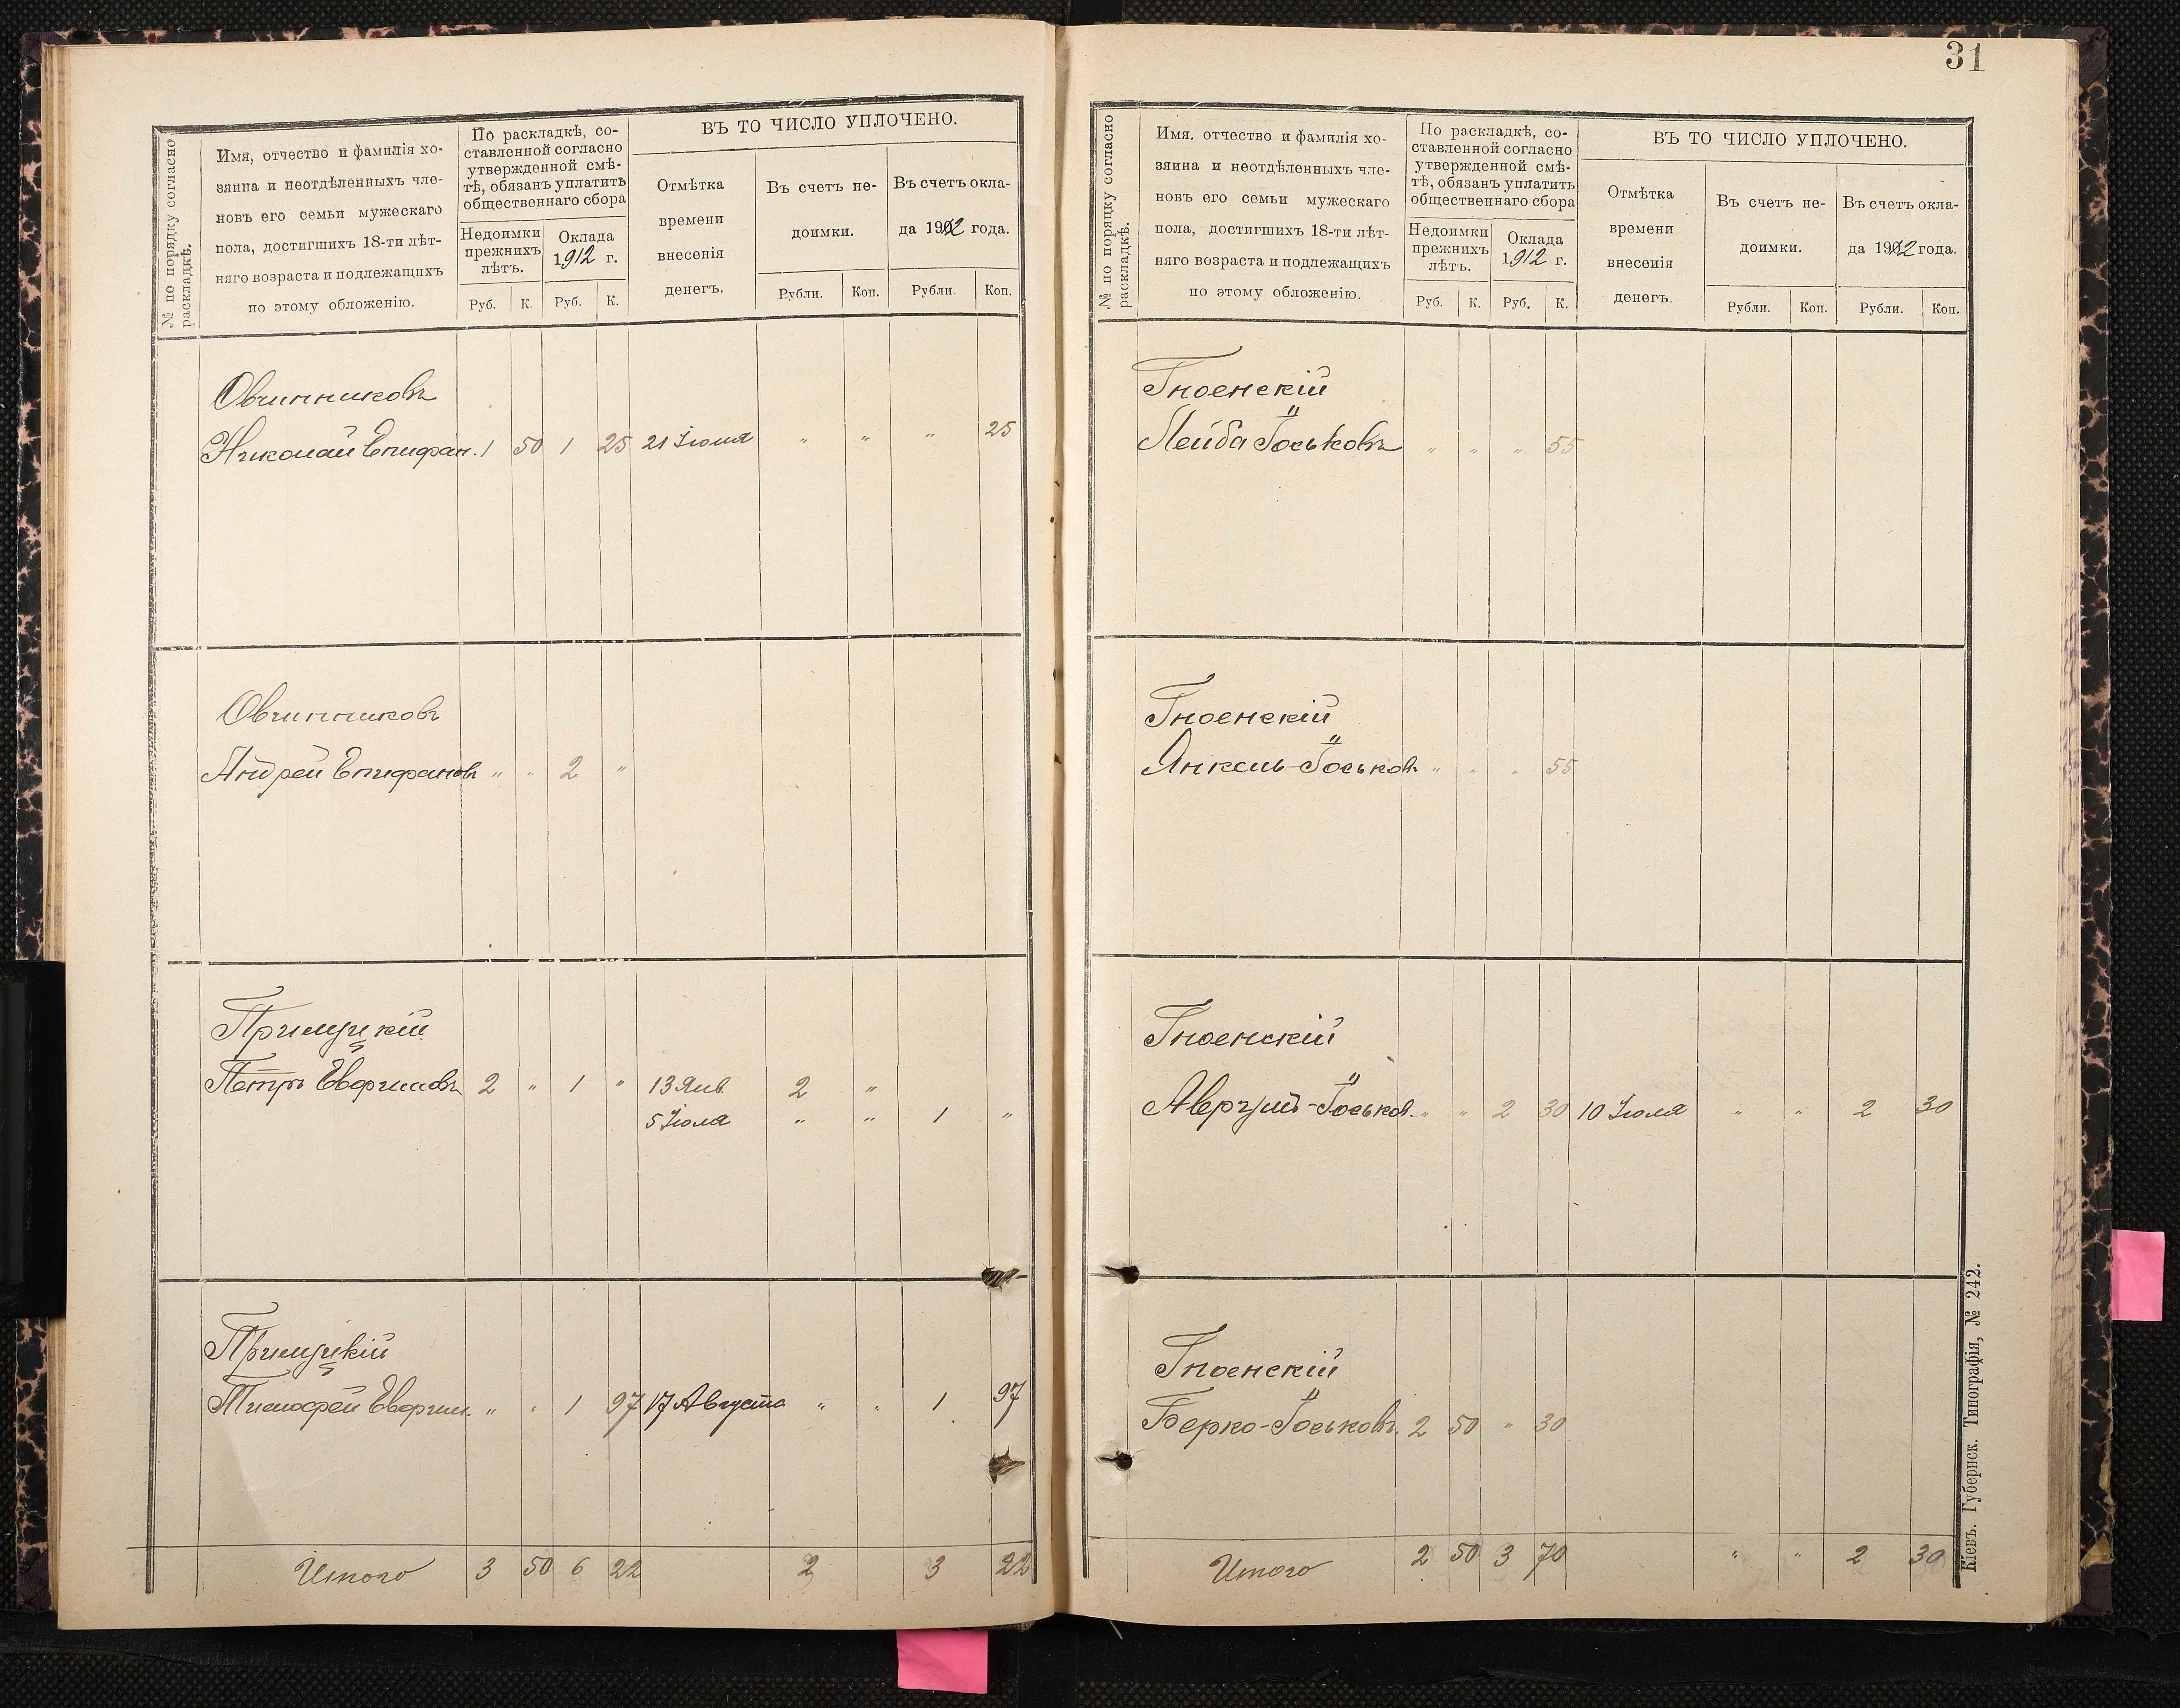 № по порядку согласно
раскладкѣ.
Имя, отчество и фамилія хо-
зяина и неотдѣленныхъ чле-
новъ его семьи мужескаго
пола, достигшихъ 18-ти лѣт-
няго возраста и подлежащихъ
по этому обложенію.
По раскладкѣ, со-
ставленной согласно
утвержденной смѣ-
тѣ, обязанъ уплатить
общественнаго сбора
Недоимки
прежнихъ
лѣтъ.
Оклада
1912 г.
Руб. К. Руб. К.
ВЪ ТО ЧИСЛО УПЛОЧЕНО.
Отмѣтка
времени
внесенія
денегъ.
Въ счетъ не-
доимки.
Въ счетъ окла-
да 1912 года.
Рубли. Коп. Рубли. Коп.
Овчинниковъ
Николай Епифан. 1 50 1 25 21 Іюля " " " 25
Овчинниковъ
Андрей Епифановъ " " 2 "
Петръ 2 " 1 " 13 Янв. 2 "
5 Іюля " " 1 "
Тимофей " " 1 97 17 Августа " " 1 97
Итого 3 50 6 22 2 3 22
31
№ по порядку согласно
раскладкѣ.
Имя. отчество и фамилія хо-
зяина и неотдѣленныхъ чле-
новъ его семьи мужескаго
пола, достигшихъ 18-ти лѣт-
няго возраста и подлежащихъ
по этому обложенію.
По раскладкѣ, со-
ставленной согласно
утвержденной смѣ-
тѣ, обязанъ уплатить
общественнаго сбора
Недоимки
прежнихъ
лѣтъ.
Оклада
1912 г.
Руб. К. Руб. К.
ВЪ ТО ЧИСЛО УПЛОЧЕНО.
Отмѣтка
времени
внесенія
денегъ.
Въ счетъ не-
доимки.
Въ счетъ окла-
да 1912 года.
Рубли. Коп. Рубли. Коп.
Гноенскій
Лейба Іоськовъ " " " 55
Гноенскій
Янкель-Іоськов. " " " 55
Гноенскій
Іоськов. " " 2 30 10 Іюля " " 2 30
Гноенскій
Берко-Іоськовъ. 2 50 " 30
Итого 2 50 3 70 " " 2 30
Кіевъ. Губернск. Типографія, № 242.